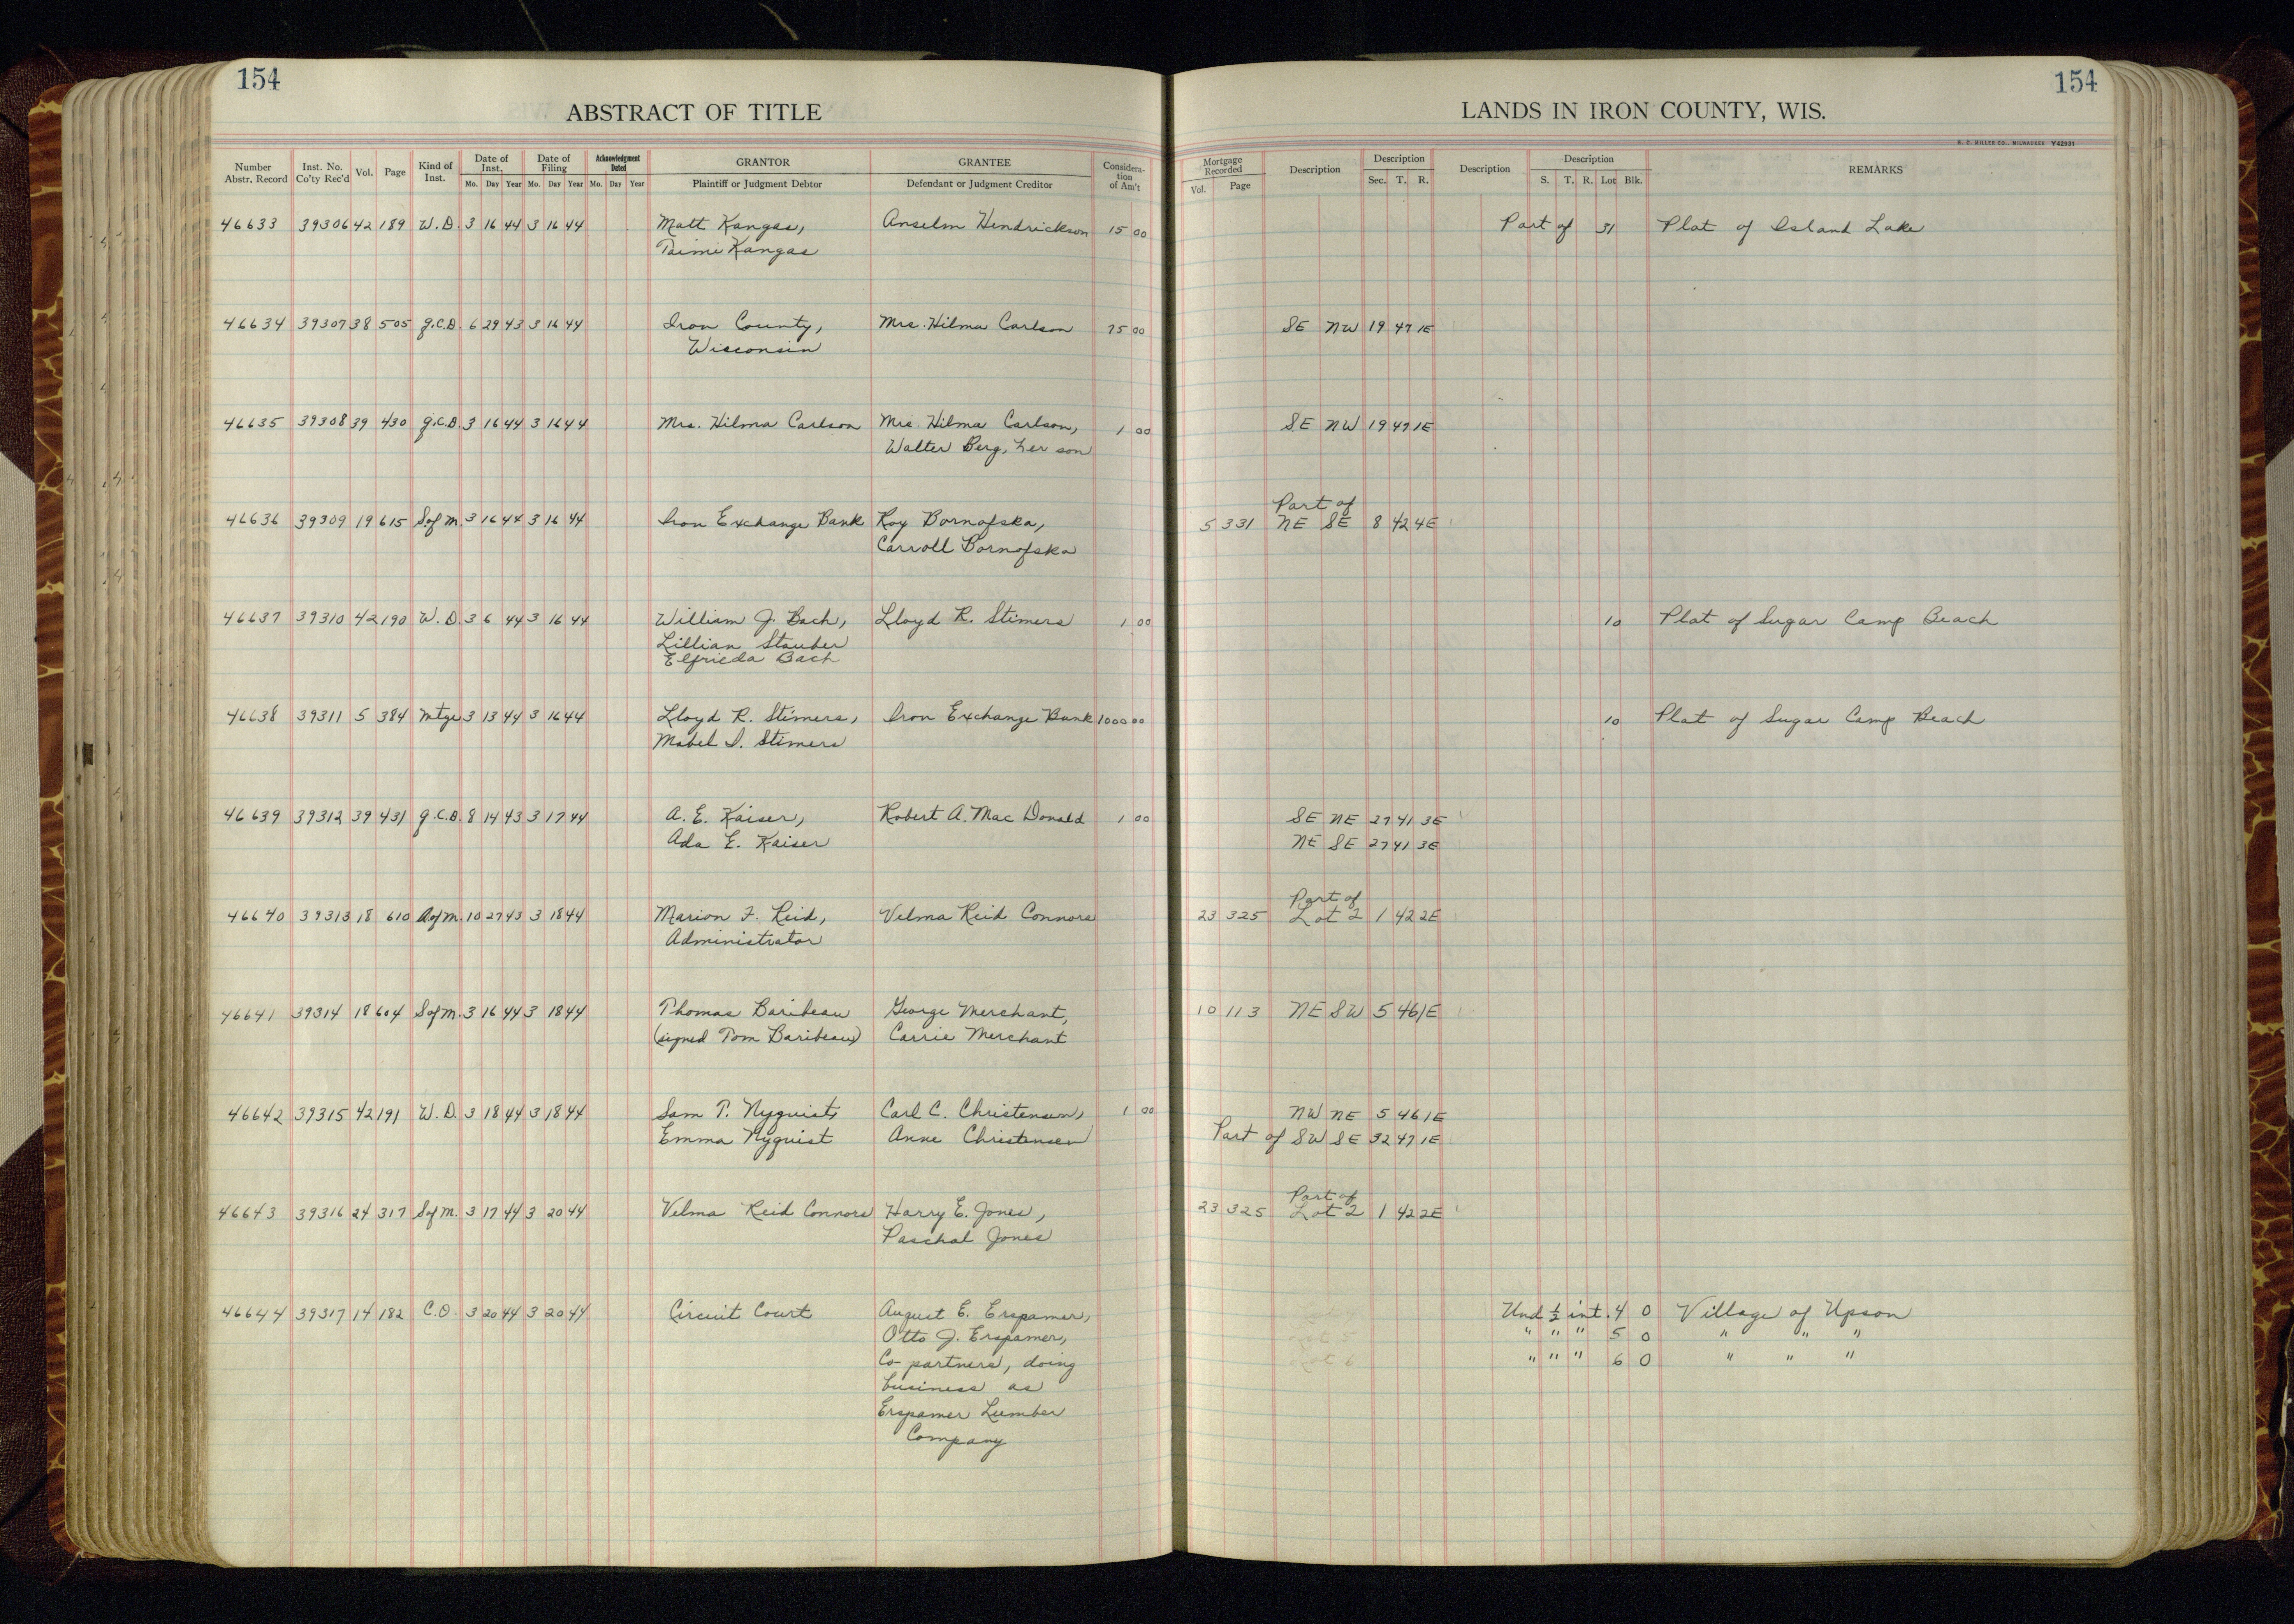 154
154
ABSTRACT OF TITLE
LANDS IN IRON COUNTY, WIS.
H. C. MILLER CO., MILWAUKEE Y42931
Number Abstr. Record Inst. No. Co'ty Rec'd Vol. Page Kind of Inst. Date of Inst. Mo. Day Year Date of Filing Mo. Day Year Acknowledgment Dated Mo. Day Year GRANTOR Plaintiff or Judgment Debtor GRANTEE Defendant or Judgment Creditor Consideration of Am't Mortgage Recorded Vol. Page Description Description Sec. T. R. Description Description S. T. R. Lot Blk. REMARKS
46633 39306 42 189 W.D. 3 16 44 3 16 44 Matt Kangas, Anselm Hendrickson 15 00 Part of 31 Plat of Island Lake
Taimi Kangas
46634 39307 38 505 Q.C.D. 6 29 43 3 16 44 Iron County, Mrs. Hilma Carlson 75 00 SE NW 19 47 1E
Wisconsin
46635 39308 39 430 Q.C.D. 3 16 44 3 16 44 Mrs. Hilma Carlson Mrs. Hilma Carlson, 1 00 SE NW 19 47 1E
Walter Berg, her son
Part of
46636 39309 19 615 S of M. 3 16 44 3 16 44 Iron Exchange Bank Roy Bornofska, 5 331 NE SE 8 42 4E
Carroll Bornofska
46637 39310 42 190 W.D. 3 6 44 3 16 44 William J. Bach, Lloyd R. Stimers 1 00 10 Plat of Sugar Camp Beach
Lillian Stauber
Elfrieda Bach
46638 39311 5 384 Mtge 3 13 44 3 16 44 Lloyd R. Stimers, Iron Exchange Bank 1000 00 10 Plat of Sugar Camp Beach
Mabel I. Stimers
46639 39312 39 431 Q.C.D. 8 14 43 3 17 44 A. E. Kaiser, Robert A. Mac Donald 1 00 SE NE 27 41 3E
Ada E. Kaiser NE SE 27 41 3E
Part of
46640 39313 18 610 A of M. 10 27 43 3 18 44 Marion F. Reid, Velma Reid Connors 23 325 Lot 2 1 42 2E
Administrator
46641 39314 18 604 S of M. 3 16 44 3 18 44 Thomas Baribeau George Merchant, 10 113 NE SW 5 46 1E
(signed Tom Baribeau) Carrie Merchant
46642 39315 42 191 W.D. 3 18 44 3 18 44 Sam T. Nyquist, Carl C. Christensen, 1 00 NW NE 5 46 1E
Emma Nyquist Anne Christensen Part of SW SE 32 47 1E
Part of
46643 39316 24 317 S of M. 3 17 44 3 20 44 Velma Reid Connors Harry E. Jones, 23 325 Lot 2 1 42 2E
Paschal Jones
46644 39317 14 182 C.O. 3 20 44 3 20 44 Circuit Court August E. Erspamer, Und ½ int. 4 0 Village of Upson
Otto J. Erspamer, " " " 5 0 " " "
Co-partners, doing Lot 6 " " " 6 0 " " "
business as
Erspamer Lumber
Company